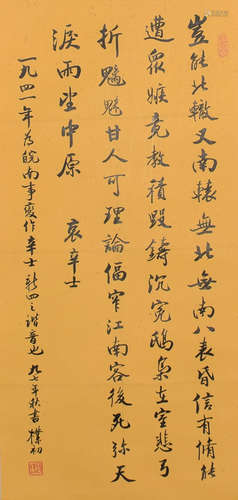 岂能北辙又南辕無北無南八表昏信有脩能
遭眾嫉竟教積毀鑄沉冤鴟梟立室悲弓
折魑魅甘人可理論偪窄江南客後死弥天
淚雨望中原 哀辛士
一九四一年為皖南事變作辛士新四之諧音也 九七年秋書樸初